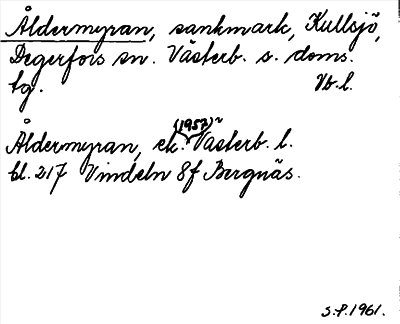 Åldermyran, sankmark, Kullsjö,
Degerfors sn. Västerb. s. doms.
tg. Vb. l.
Åldermyran, ek. (1957) Västerb. l.
bl. 217 Vindeln 8f Bergnäs.
S.P. 1961.